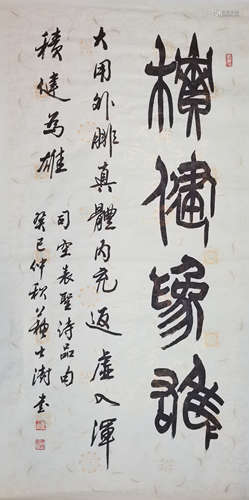 積健為雄
大用外腓真體内充返虛入渾
積健為雄
司空表聖詩品句
癸巳仲秋蘇士澍書